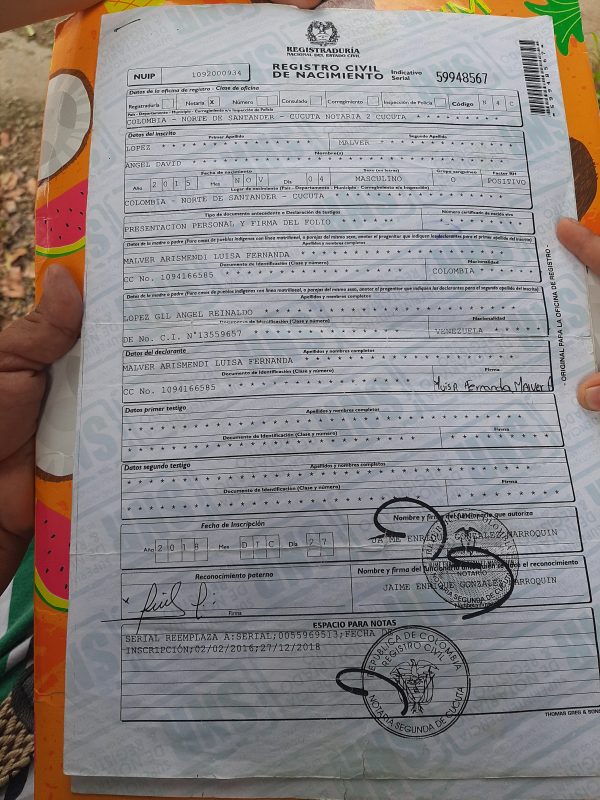 REGISTRADURÍA
NACIONAL DEL ESTADO CIVIL
REGISTRO CIVIL
DE NACIMIENTO
NUIP 1092000934
Indicativo Serial 59948567
Datos de la oficina de registro - Clase de oficina
Registraduría Notaría X Número Consulado Corregimiento Inspección de Policía Código N 4 C
País - Departamento - Municipio - Corregimiento e/o Inspección de Policía
COLOMBIA - NORTE DE SANTANDER - CUCUTA NOTARIA 2 CUCUTA * * * * * * *
Datos del inscrito
Primer Apellido Segundo Apellido
LOPEZ MALVER
Nombre(s)
ANGEL DAVID
Fecha de nacimiento Sexo (en letras) Grupo sanguíneo Factor RH
Año 2015 Mes NOV Día 04 MASCULINO O POSITIVO
Lugar de nacimiento (País - Departamento - Municipio - Corregimiento e/o Inspección)
COLOMBIA - NORTE DE SANTANDER - CUCUTA
Tipo de documento antecedente o Declaración de testigos Número certificado de nacido vivo
PRESENTACION PERSONAL Y FIRMA DEL FOLIO
Apellidos y nombres completos
MALVER ARISMENDI LUISA FERNANDA
Documento de Identificación (Clase y número) Nacionalidad
CC No. 1094166585 COLOMBIA
Apellidos y nombres completos
LOPEZ GIL ANGEL REINALDO
Documento de Identificación (Clase y número) Nacionalidad
DE No. C.I. N°13559657 VENEZUELA
Datos del declarante
Apellidos y nombres completos
MALVER ARISMENDI LUISA FERNANDA
Documento de Identificación (Clase y número) Firma
CC No. 1094166585 Luisa Fernanda Malver
Datos primer testigo
Apellidos y nombres completos
Documento de Identificación (Clase y número) Firma
Datos segundo testigo
Apellidos y nombres completos
Documento de Identificación (Clase y número) Firma
Fecha de Inscripción Nombre y firma del funcionario que autoriza
Año 2018 Mes DIC Día 27 JAIME ENRIQUE GONZALEZ MARROQUIN
Reconocimiento paterno Nombre y firma del funcionario ante quien se hace el reconocimiento
JAIME ENRIQUE GONZALEZ MARROQUIN
Firma
ESPACIO PARA NOTAS
SERIAL REEMPLAZA A:SERIAL;0055969513;FECHA DE
INSCRIPCIÓN;02/02/2016;27/12/2018
REPÚBLICA DE COLOMBIA
REGISTRO CIVIL
NOTARIA SEGUNDA DE CUCUTA
ORIGINAL PARA LA OFICINA DE REGISTRO
THOMAS GREG & SONS